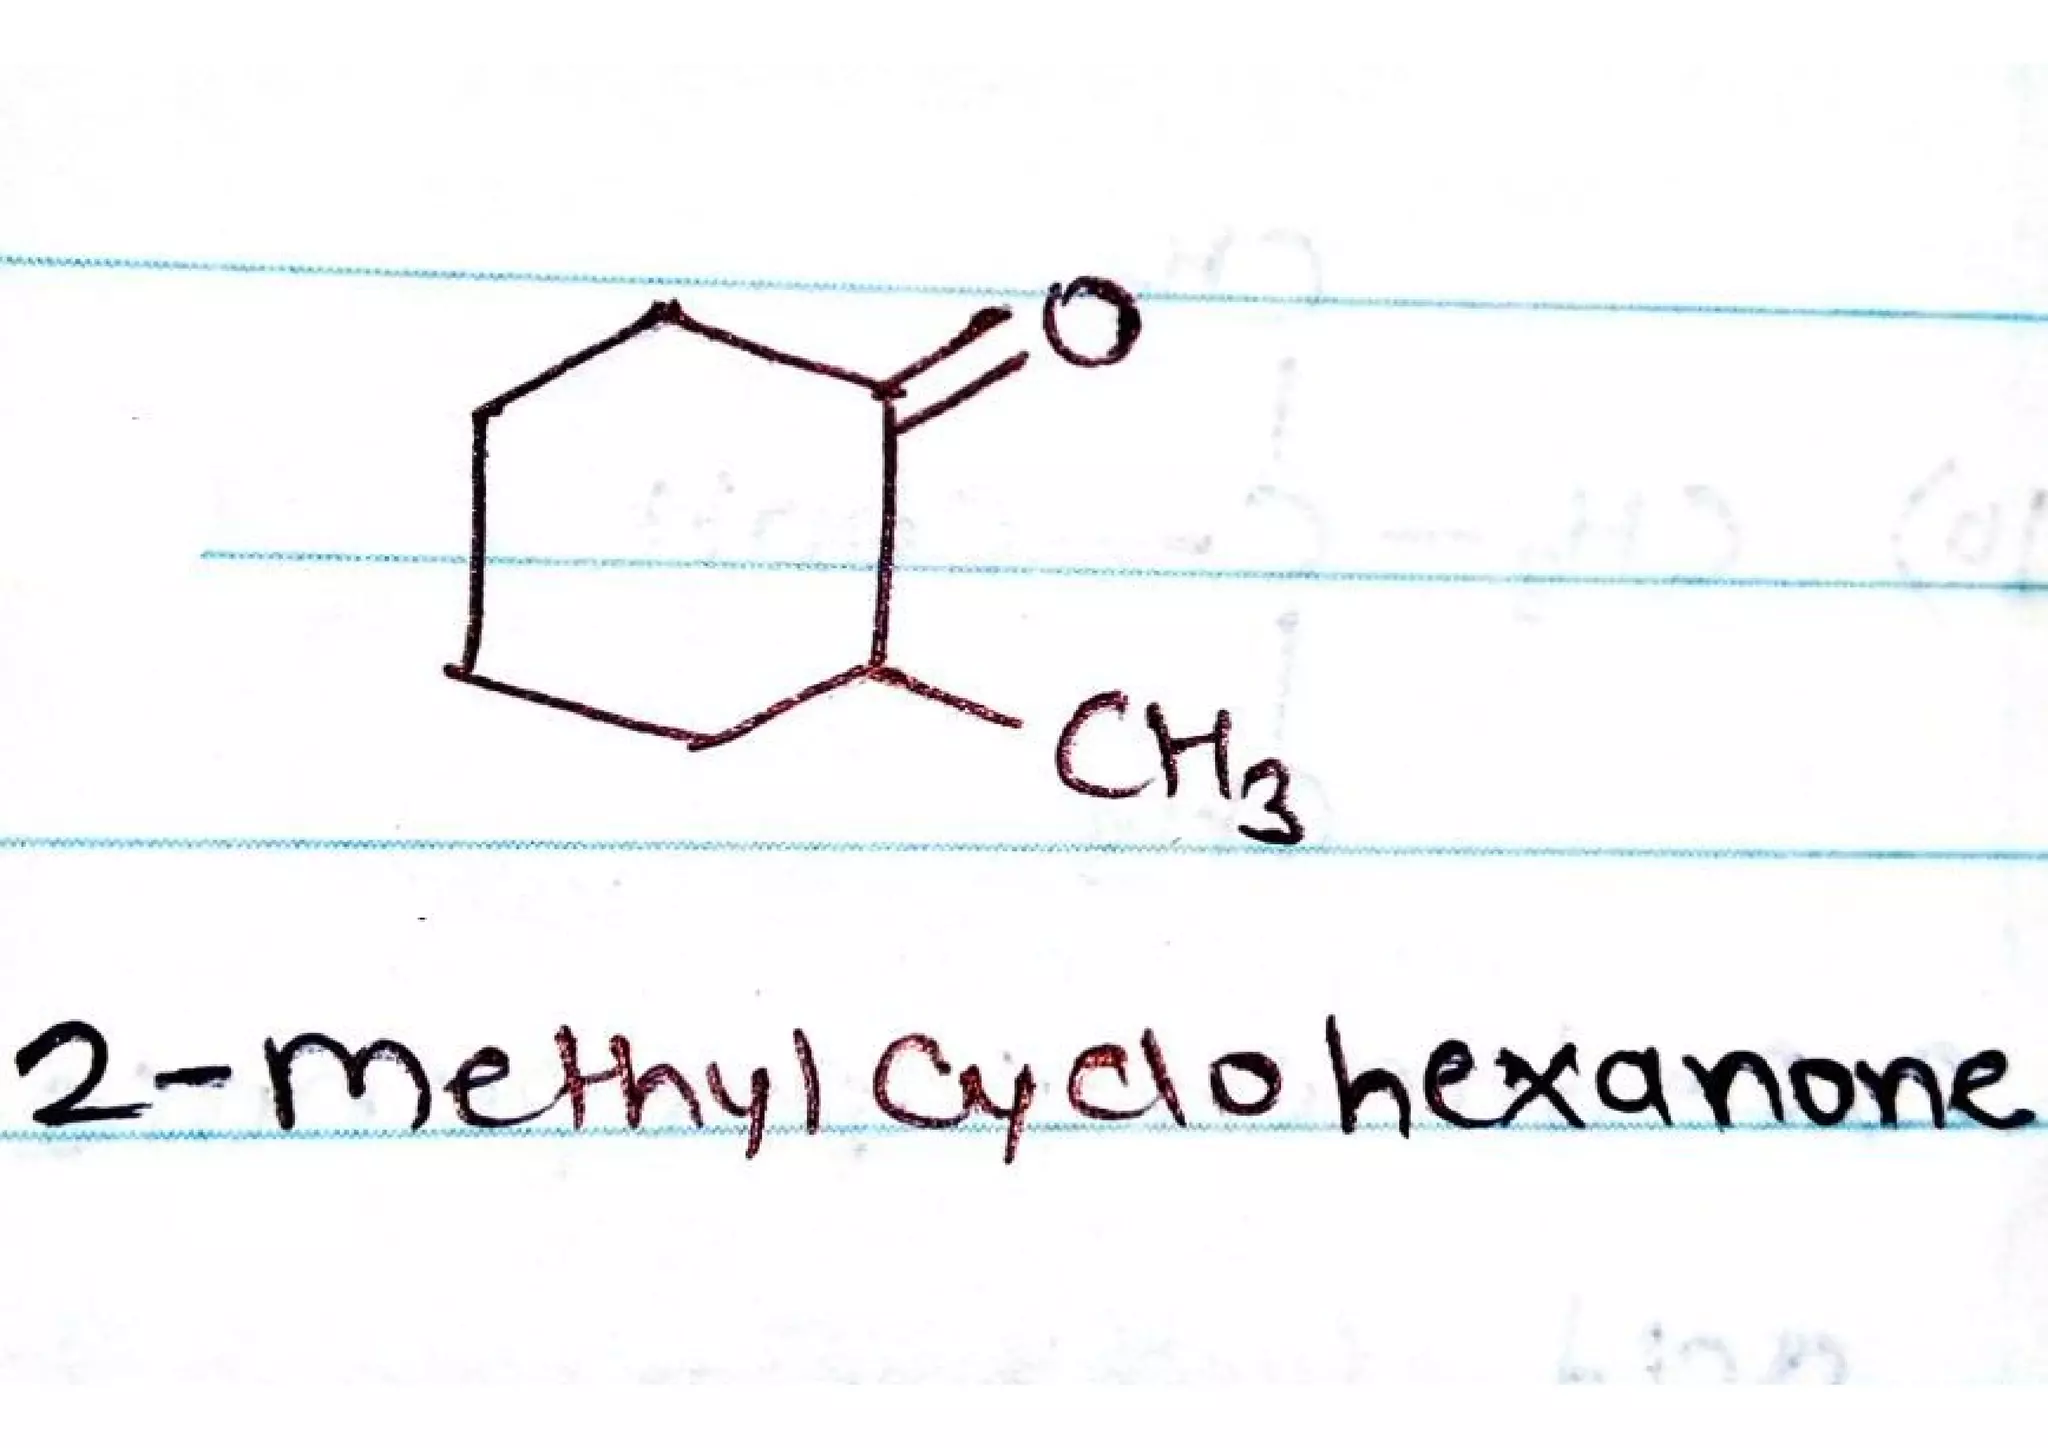 O
CH3
2-methylcyclohexanone